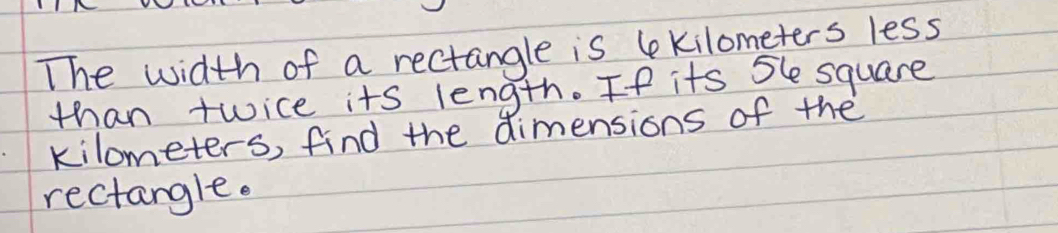 The width of a rectangle is 6 kilometers less
than twice its length. If its 56 square
kilometers, find the dimensions of the
rectangle.